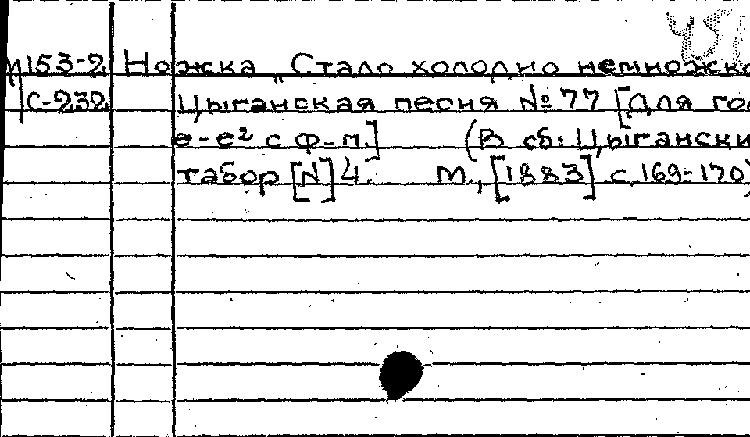 М153-2 Ножка „Стало холодно немножко
С-232 Цыганская песня №77 [Для гол
е-е² с ф-п.] (В сб: Цыгански
табор [N] 4. М., [1883] с. 169-170)